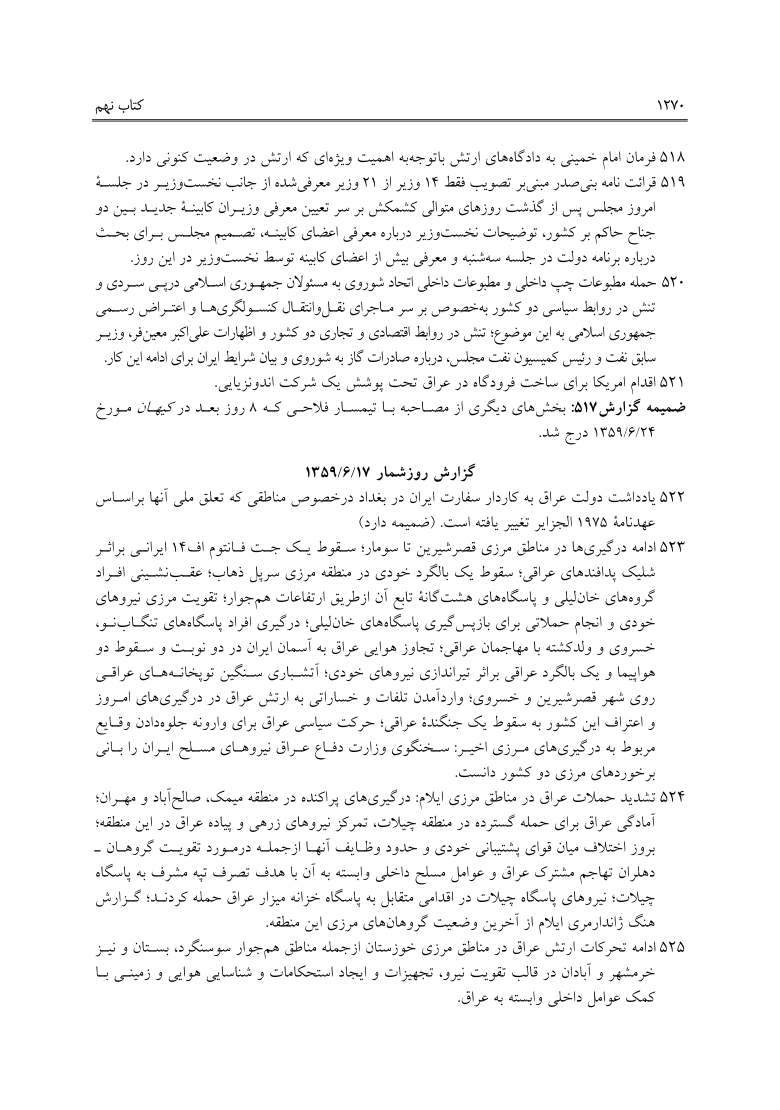 ۱۲۷۰ کتاب نهم
۵۱۸ فرمان امام خمینی به دادگاه‌های ارتش باتوجه‌به اهمیت ویژه‌ای که ارتش در وضعیت کنونی دارد.
۵۱۹ قرائت نامه بنی‌صدر مبنی‌بر تصویب فقط ۱۴ وزیر از ۲۱ وزیر معرفی‌شده از جانب نخست‌وزیر در جلسهٔ
امروز مجلس پس از گذشت روزهای متوالی کشمکش بر سر تعیین معرفی وزیران کابینهٔ جدید بین دو
جناح حاکم بر کشور، توضیحات نخست‌وزیر درباره معرفی اعضای کابینه، تصمیم مجلس برای بحث
درباره برنامه دولت در جلسه سه‌شنبه و معرفی بیش از اعضای کابینه توسط نخست‌وزیر در این روز.
۵۲۰ حمله مطبوعات چپ داخلی و مطبوعات داخلی اتحاد شوروی به مسئولان جمهوری اسلامی درپی سردی و
تنش در روابط سیاسی دو کشور به‌خصوص بر سر ماجرای نقل‌وانتقال کنسولگری‌ها و اعتراض رسمی
جمهوری اسلامی به این موضوع؛ تنش در روابط اقتصادی و تجاری دو کشور و اظهارات علی‌اکبر معین‌فر، وزیر
سابق نفت و رئیس کمیسیون نفت مجلس، درباره صادرات گاز به شوروی و بیان شرایط ایران برای ادامه این کار.
۵۲۱ اقدام امریکا برای ساخت فرودگاه در عراق تحت پوشش یک شرکت اندونزیایی.
ضمیمه گزارش۵۱۷: بخش‌های دیگری از مصاحبه با تیمسار فلاحی که ۸ روز بعد در کیهان مورخ
۱۳۵۹/۶/۲۴ درج شد.
گزارش روزشمار ۱۳۵۹/۶/۱۷
۵۲۲ یادداشت دولت عراق به کاردار سفارت ایران در بغداد درخصوص مناطقی که تعلق ملی آنها براساس
عهدنامهٔ ۱۹۷۵ الجزایر تغییر یافته است. (ضمیمه دارد)
۵۲۳ ادامه درگیری‌ها در مناطق مرزی قصرشیرین تا سومار؛ سقوط یک جت فانتوم اف۱۴ ایرانی براثر
شلیک پدافندهای عراقی؛ سقوط یک بالگرد خودی در منطقه مرزی سرپل ذهاب؛ عقب‌نشینی افراد
گروه‌های خان‌لیلی و پاسگاه‌های هشت‌گانهٔ تابع آن ازطریق ارتفاعات هم‌جوار؛ تقویت مرزی نیروهای
خودی و انجام حملاتی برای بازپس‌گیری پاسگاه‌های خان‌لیلی؛ درگیری افراد پاسگاه‌های تنگاب‌نو،
خسروی و ولدکشته با مهاجمان عراقی؛ تجاوز هوایی عراق به آسمان ایران در دو نوبت و سقوط دو
هواپیما و یک بالگرد عراقی براثر تیراندازی نیروهای خودی؛ آتشباری سنگین توپخانه‌های عراقی
روی شهر قصرشیرین و خسروی؛ واردآمدن تلفات و خساراتی به ارتش عراق در درگیری‌های امروز
و اعتراف این کشور به سقوط یک جنگندهٔ عراقی؛ حرکت سیاسی عراق برای وارونه جلوه‌دادن وقایع
مربوط به درگیری‌های مرزی اخیر: سخنگوی وزارت دفاع عراق نیروهای مسلح ایران را بانی
برخوردهای مرزی دو کشور دانست.
۵۲۴ تشدید حملات عراق در مناطق مرزی ایلام: درگیری‌های پراکنده در منطقه میمک، صالح‌آباد و مهران؛
آمادگی عراق برای حمله گسترده در منطقه چیلات، تمرکز نیروهای زرهی و پیاده عراق در این منطقه؛
بروز اختلاف میان قوای پشتیبانی خودی و حدود وظایف آنها ازجمله درمورد تقویت گروهان ـ
دهلران تهاجم مشترک عراق و عوامل مسلح داخلی وابسته به آن با هدف تصرف تپه مشرف به پاسگاه
چیلات؛ نیروهای پاسگاه چیلات در اقدامی متقابل به پاسگاه خزانه میزار عراق حمله کردند؛ گزارش
هنگ ژاندارمری ایلام از آخرین وضعیت گروهان‌های مرزی این منطقه.
۵۲۵ ادامه تحرکات ارتش عراق در مناطق مرزی خوزستان ازجمله مناطق هم‌جوار سوسنگرد، بستان و نیز
خرمشهر و آبادان در قالب تقویت نیرو، تجهیزات و ایجاد استحکامات و شناسایی هوایی و زمینی با
کمک عوامل داخلی وابسته به عراق.